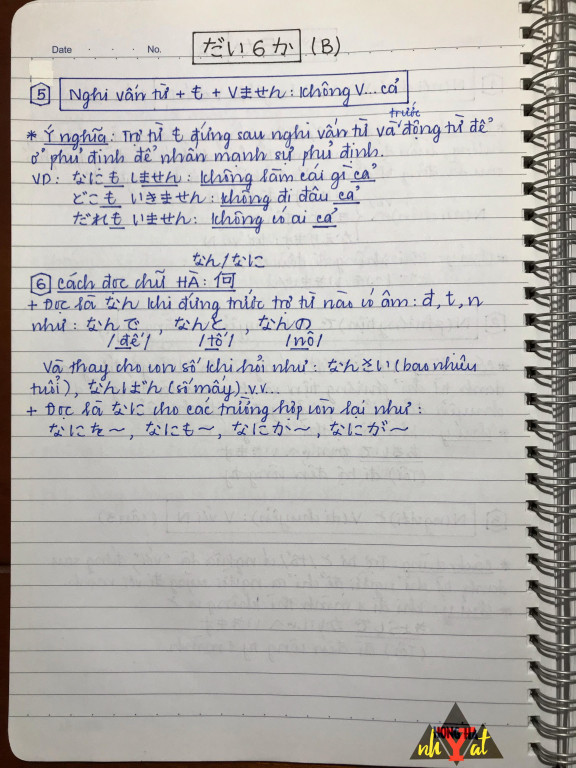 Date . . . No.
だい6か (B)
5 Nghi vấn từ + も + Vません: Không V... cả
trước
* Ý nghĩa: Trợ từ も đứng sau nghi vấn từ và động từ để
ở phủ định để nhấn mạnh sự phủ định.
VD: なにも しません: Không làm cái gì cả
どこも いきません: Không đi đâu cả
だれも いません: Không có ai cả
なん/なに
6 Cách đọc chữ HÀ: 何
+ Đọc là なん khi đứng trước trợ từ nào có âm: đ, t, n
như: なんで, なんと, なんの
/đê/ /tô/ /nô/
Và thay cho con số khi hỏi như: なんさい (bao nhiêu
tuổi), なんばん (số mấy) v.v...
+ Đọc là なに cho các trường hợp còn lại như:
なにを〜, なにも〜, なにか〜, なにが〜
nh Y at